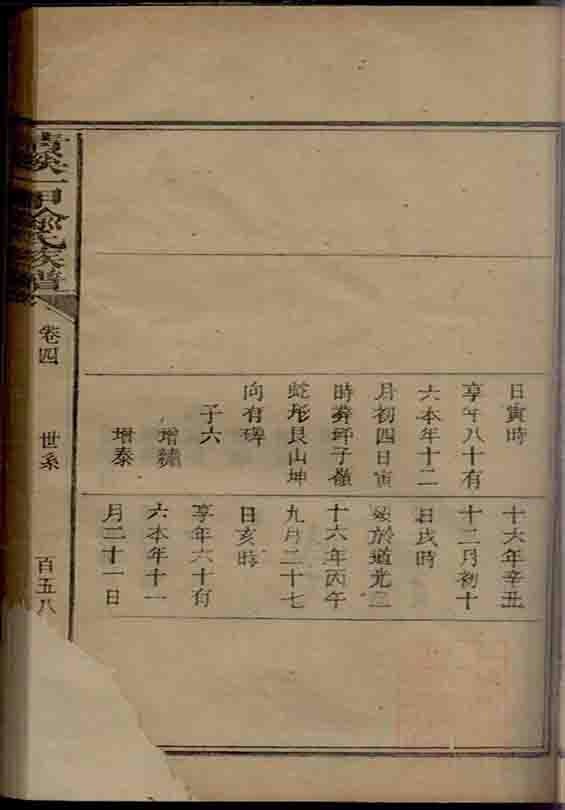 日寅時
享年八十有
六本年十二
月初四日寅
時葬坪子嶺
蛇形艮山坤
向有碑
子六
增繡
增泰
十六年辛丑
十二月初十
日戌時
歿於道光二
十六年丙午
九月二十七
日亥時
享年六十有
六本年十一
月二十一日
一甲 氏族譜
卷四
世系
百五八